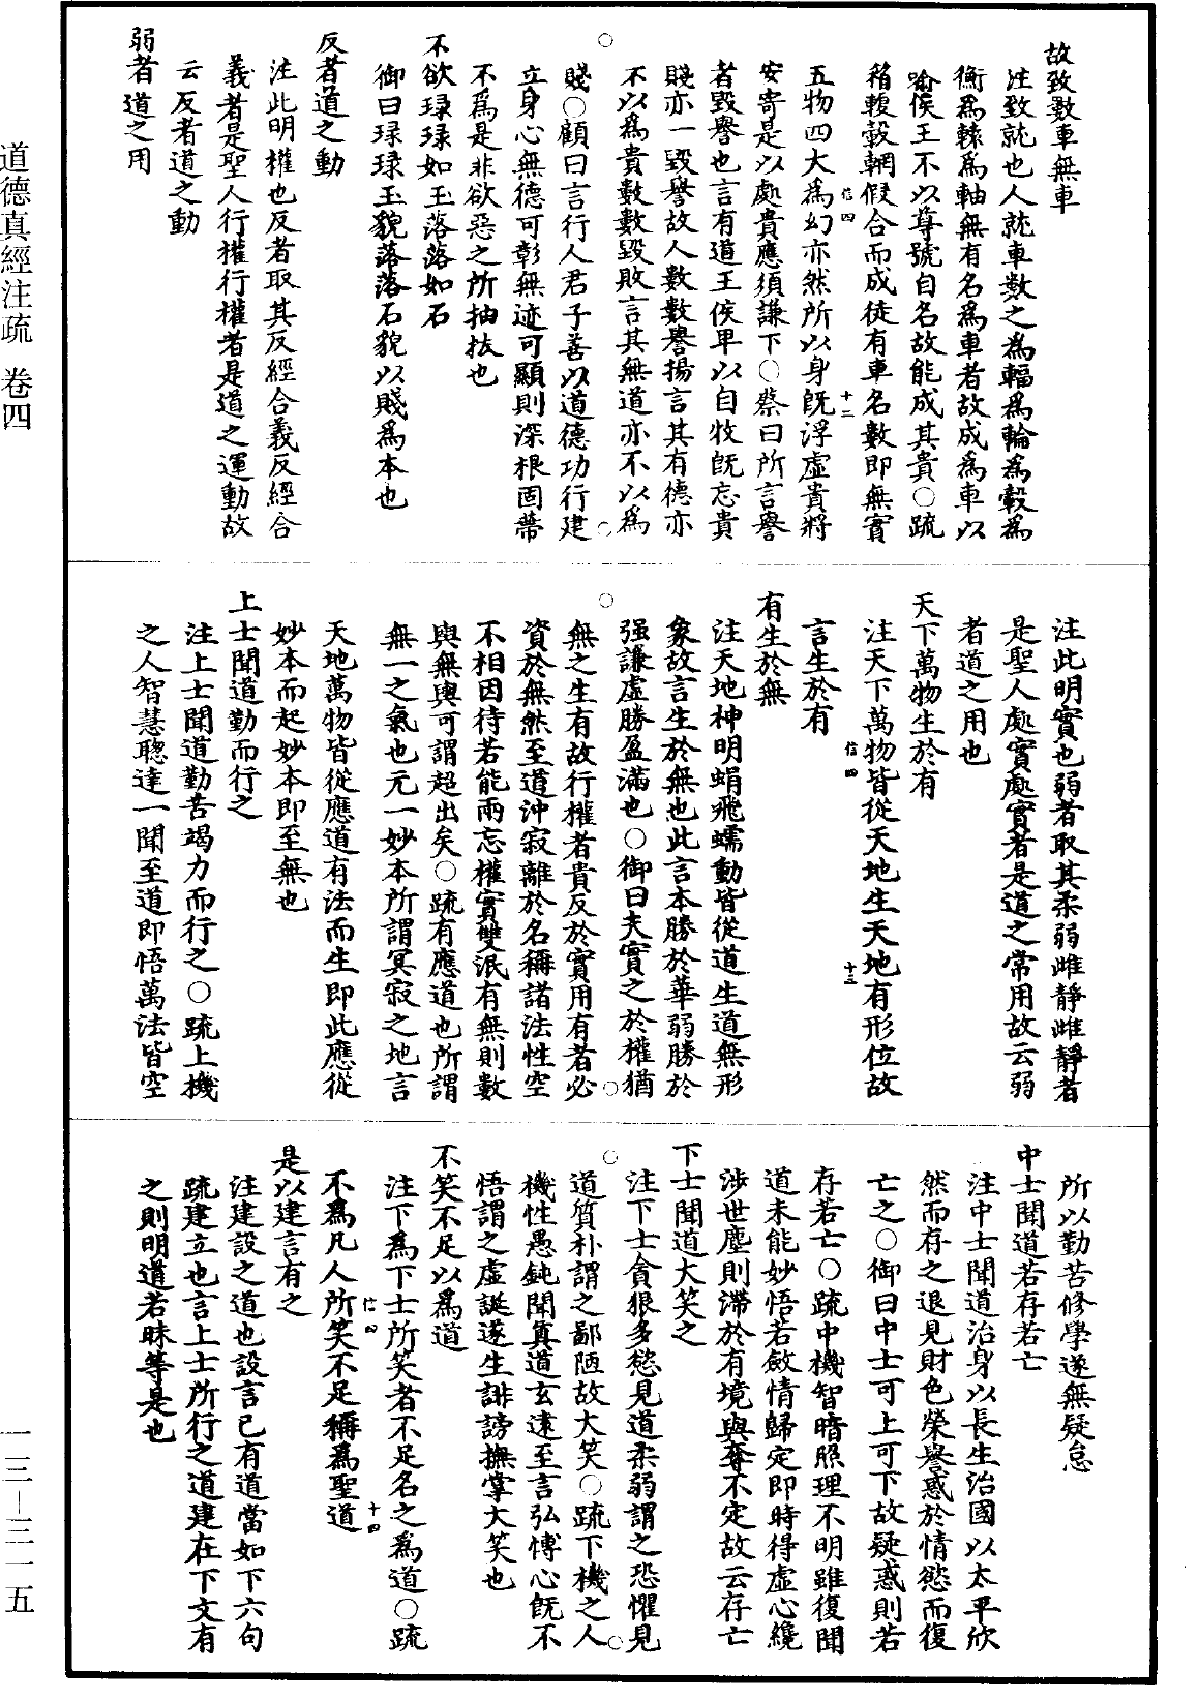 道德真經注疏 卷四
一三—三一五
故致數車無車
注致就也人就車數之為輻為輪為轂為
衡為轅為軸無有名為車者故成為車以
喻侯王不以尊號自名故能成其貴○疏
箱輻轂輞假合而成徒有車名數即無實
信四 十二
五物四大為幻亦然所以身既浮虛貴將
安寄是以處貴應須謙下○蔡曰所言譽
者毀譽也言有道王侯卑以自牧既忘貴
賤亦一毀譽故人數數譽揚言其有德亦
不以為貴數數毀敗言其無道亦不以為
賤○顧曰言行人君子善以道德功行建
立身心無德可彰無迹可顯則深根固蔕
不為是非欲惡之所抽拔也
不欲琭琭如玉落落如石
御曰琭琭玉貌落落石貌以賤為本也
反者道之動
注此明權也反者取其反經合義反經合
義者是聖人行權行權者是道之運動故
云反者道之動
弱者道之用
注此明實也弱者取其柔弱雌靜雌靜者
是聖人處實處實者是道之常用故云弱
者道之用也
天下萬物生於有
注天下萬物皆從天地生天地有形位故
信四 十三
言生於有
有生於無
注天地神明蜎飛蠕動皆從道生道無形
象故言生於無也此言本勝於華弱勝於
强謙虛勝盈滿也○御曰夫實之於權猶
無之生有故行權者貴反於實用有者必
資於無然至道沖寂離於名稱諸法性空
不相因待若能兩忘權實雙泯有無則數
輿無輿可謂超出矣○疏有應道也所謂
無一之氣也元一妙本所謂冥寂之地言
天地萬物皆從應道有法而生即此應從
妙本而起妙本即至無也
上士聞道勤而行之
注上士聞道勤苦竭力而行之○疏上機
之人智慧聰達一聞至道即悟萬法皆空
所以勤苦修學遂無疑怠
中士聞道若存若亡
注中士聞道治身以長生治國以太平欣
然而存之退見財色榮譽惑於情慾而復
亡之○御曰中士可上可下故疑惑則若
存若亡○疏中機智暗照理不明雖復聞
道未能妙悟若斂情歸定即時得虛心纔
涉世塵則滯於有境與奪不定故云存亡
下士聞道大笑之
注下士貪狠多慾見道柔弱謂之恐懼見
道質朴謂之鄙陋故大笑○疏下機之人
機性愚鈍聞真道玄遠至言弘博心既不
悟謂之虛誕遂生誹謗撫掌大笑也
不笑不足以為道
注下為下士所笑者不足名之為道○疏
信四 十四
不為凡人所笑不足稱為聖道
是以建言有之
注建設之道也設言已有道當如下六句
疏建立也言上士所行之道建在下文有
之則明道若昧等是也